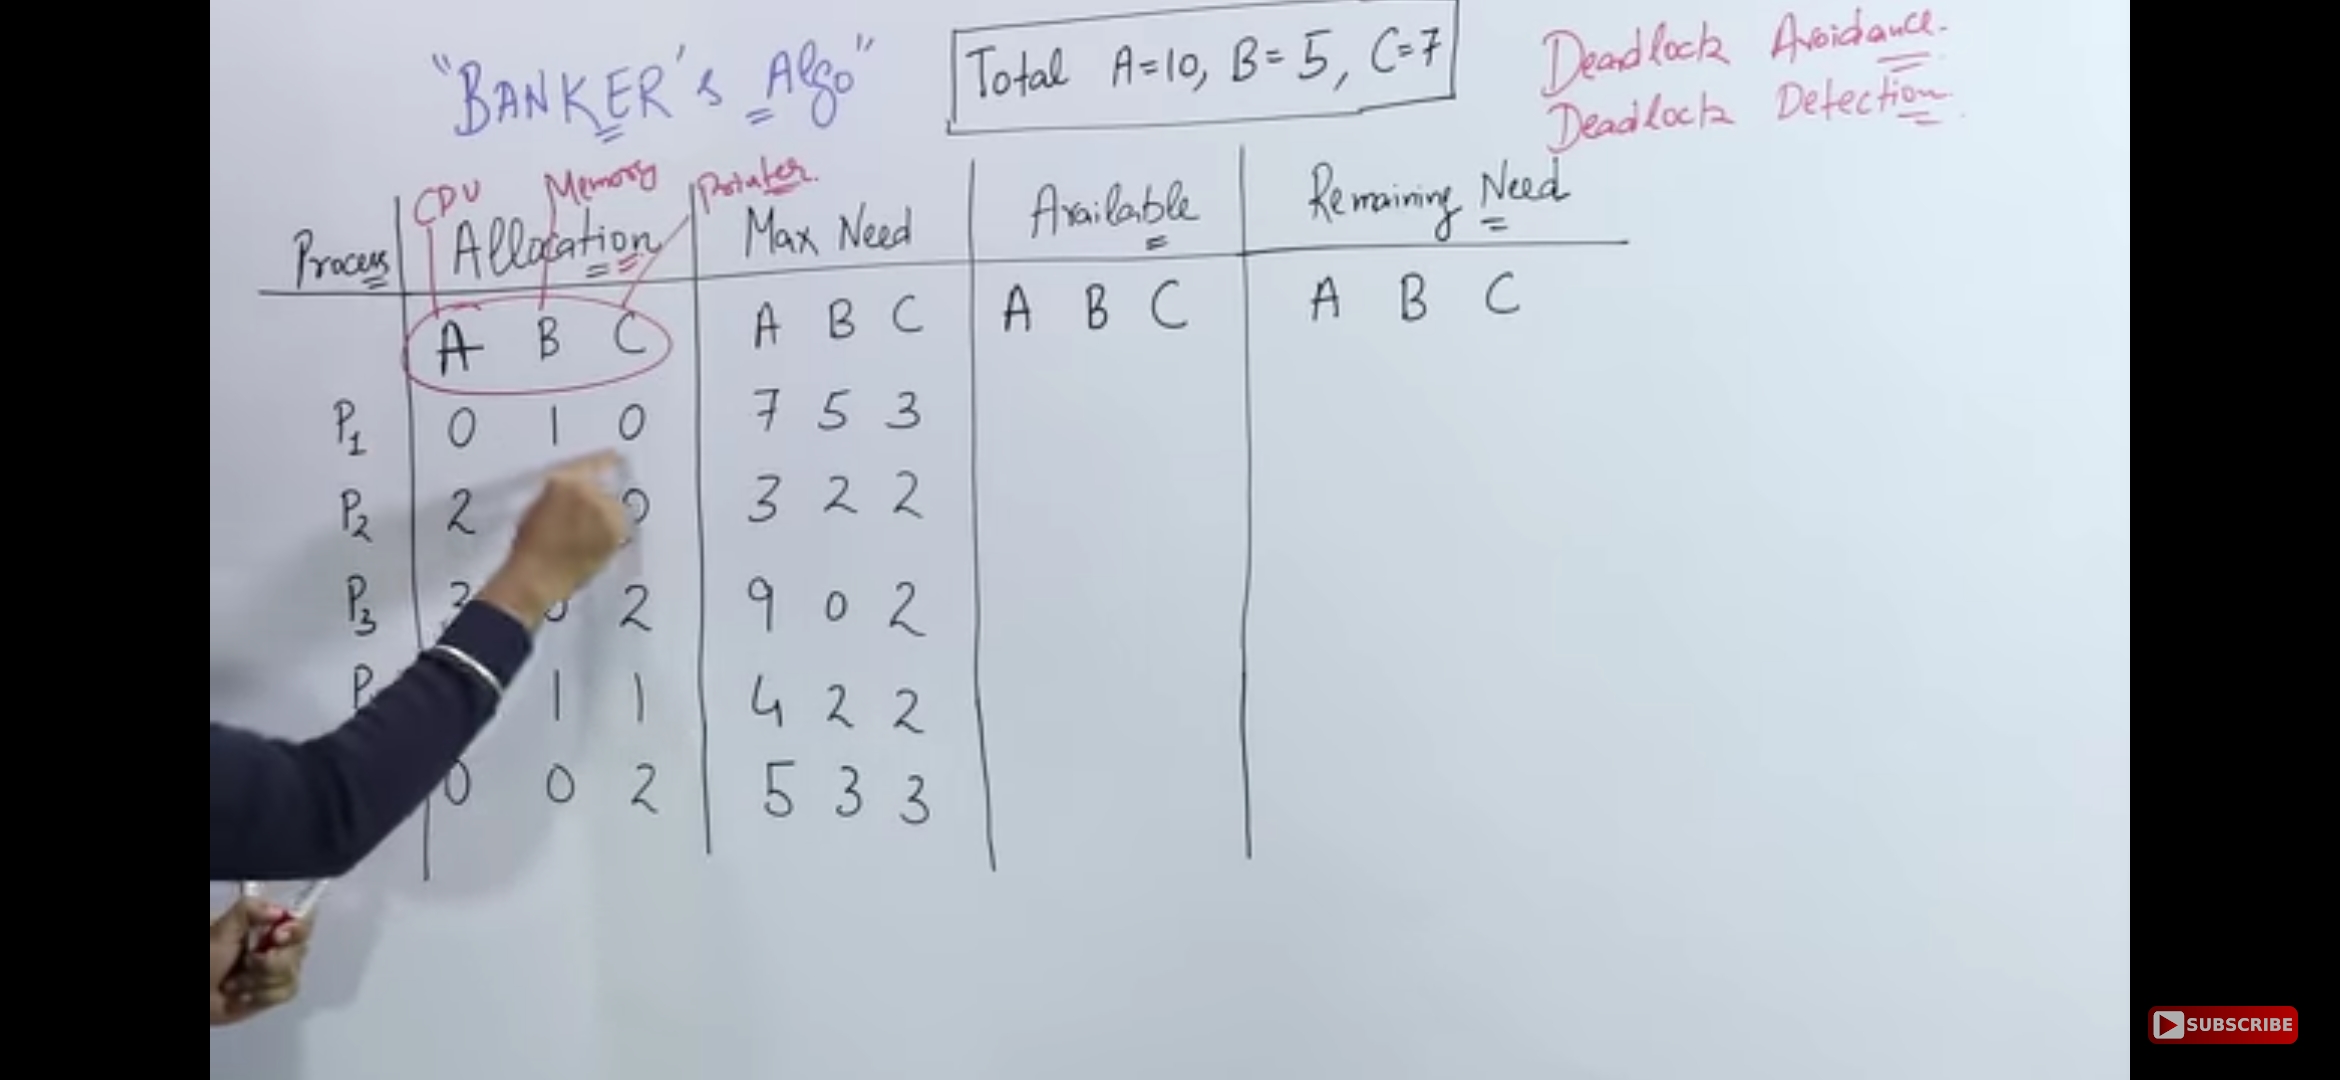 "BANKER's Algo"
Total A=10, B=5, C=7
Deadlock Avoidance.
Deadlock Detection.
CPU Memory Printer.
Process Allocation Max Need Available Remaining Need
A B C A B C A B C A B C
P1 0 1 0 7 5 3
P2 2 0 3 2 2
P3 3 0 2 9 0 2
P 1 1 4 2 2
0 0 2 5 3 3
SUBSCRIBE